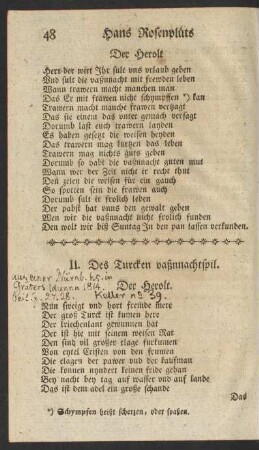 48 Hans Rosenplüts
Der Herolt
Herr der wirt Ihr sult vns vrlaub geben
Vnd sult die vaßnnacht mit frewden leben
Wann trawern macht manchen man
Das Er mit frawen nicht schympffen *) kan
Trawern macht manche frawen vertzagt
Das sie einem das vnter gemach versagt
Dorumb last euch trawern layden
Es haben gesetzt die weisen heyden
Das trawern mag kurtzen das leben
Trawern mag nichts guts geben
Dorumb so habt die vaßnnacht guten mut
Wann wer der Zeit nicht ir recht thut
Den zelen die weisen für ein gauch
So spotten sein die frawen auch
Dorumb sult ir frolich leben
Der pabst hat vnns den gewalt geben
Wen wir die vaßnnacht nicht frolich funden
Den wolt wir biß Suntag In den pan lassen verkunden.
II. Des Turcken vaßnnachtspil.
aus einer Nürnb. hs. in
Gräters Idunna 1814.
27. 28. Keller nº 39.
Der Herolt.
Nun sweigt vnd hort fremde mere
Der groß Turck ist kumen here
Der kriechenlant gewunnen hat
Der ist hie mit seinem weisen Rat
Den sind vil großer clage furkumen
Von eytel Cristen von den frumen
Die clagen der pawer vnd der kaufman
Die konnen nyndert keinen fride gehan
Bey nacht bey tag auf wasser vnd auf lande
Das ist dem adel ein große schande
Das
*) Schympfen heißt scherzen, oder spaßen.